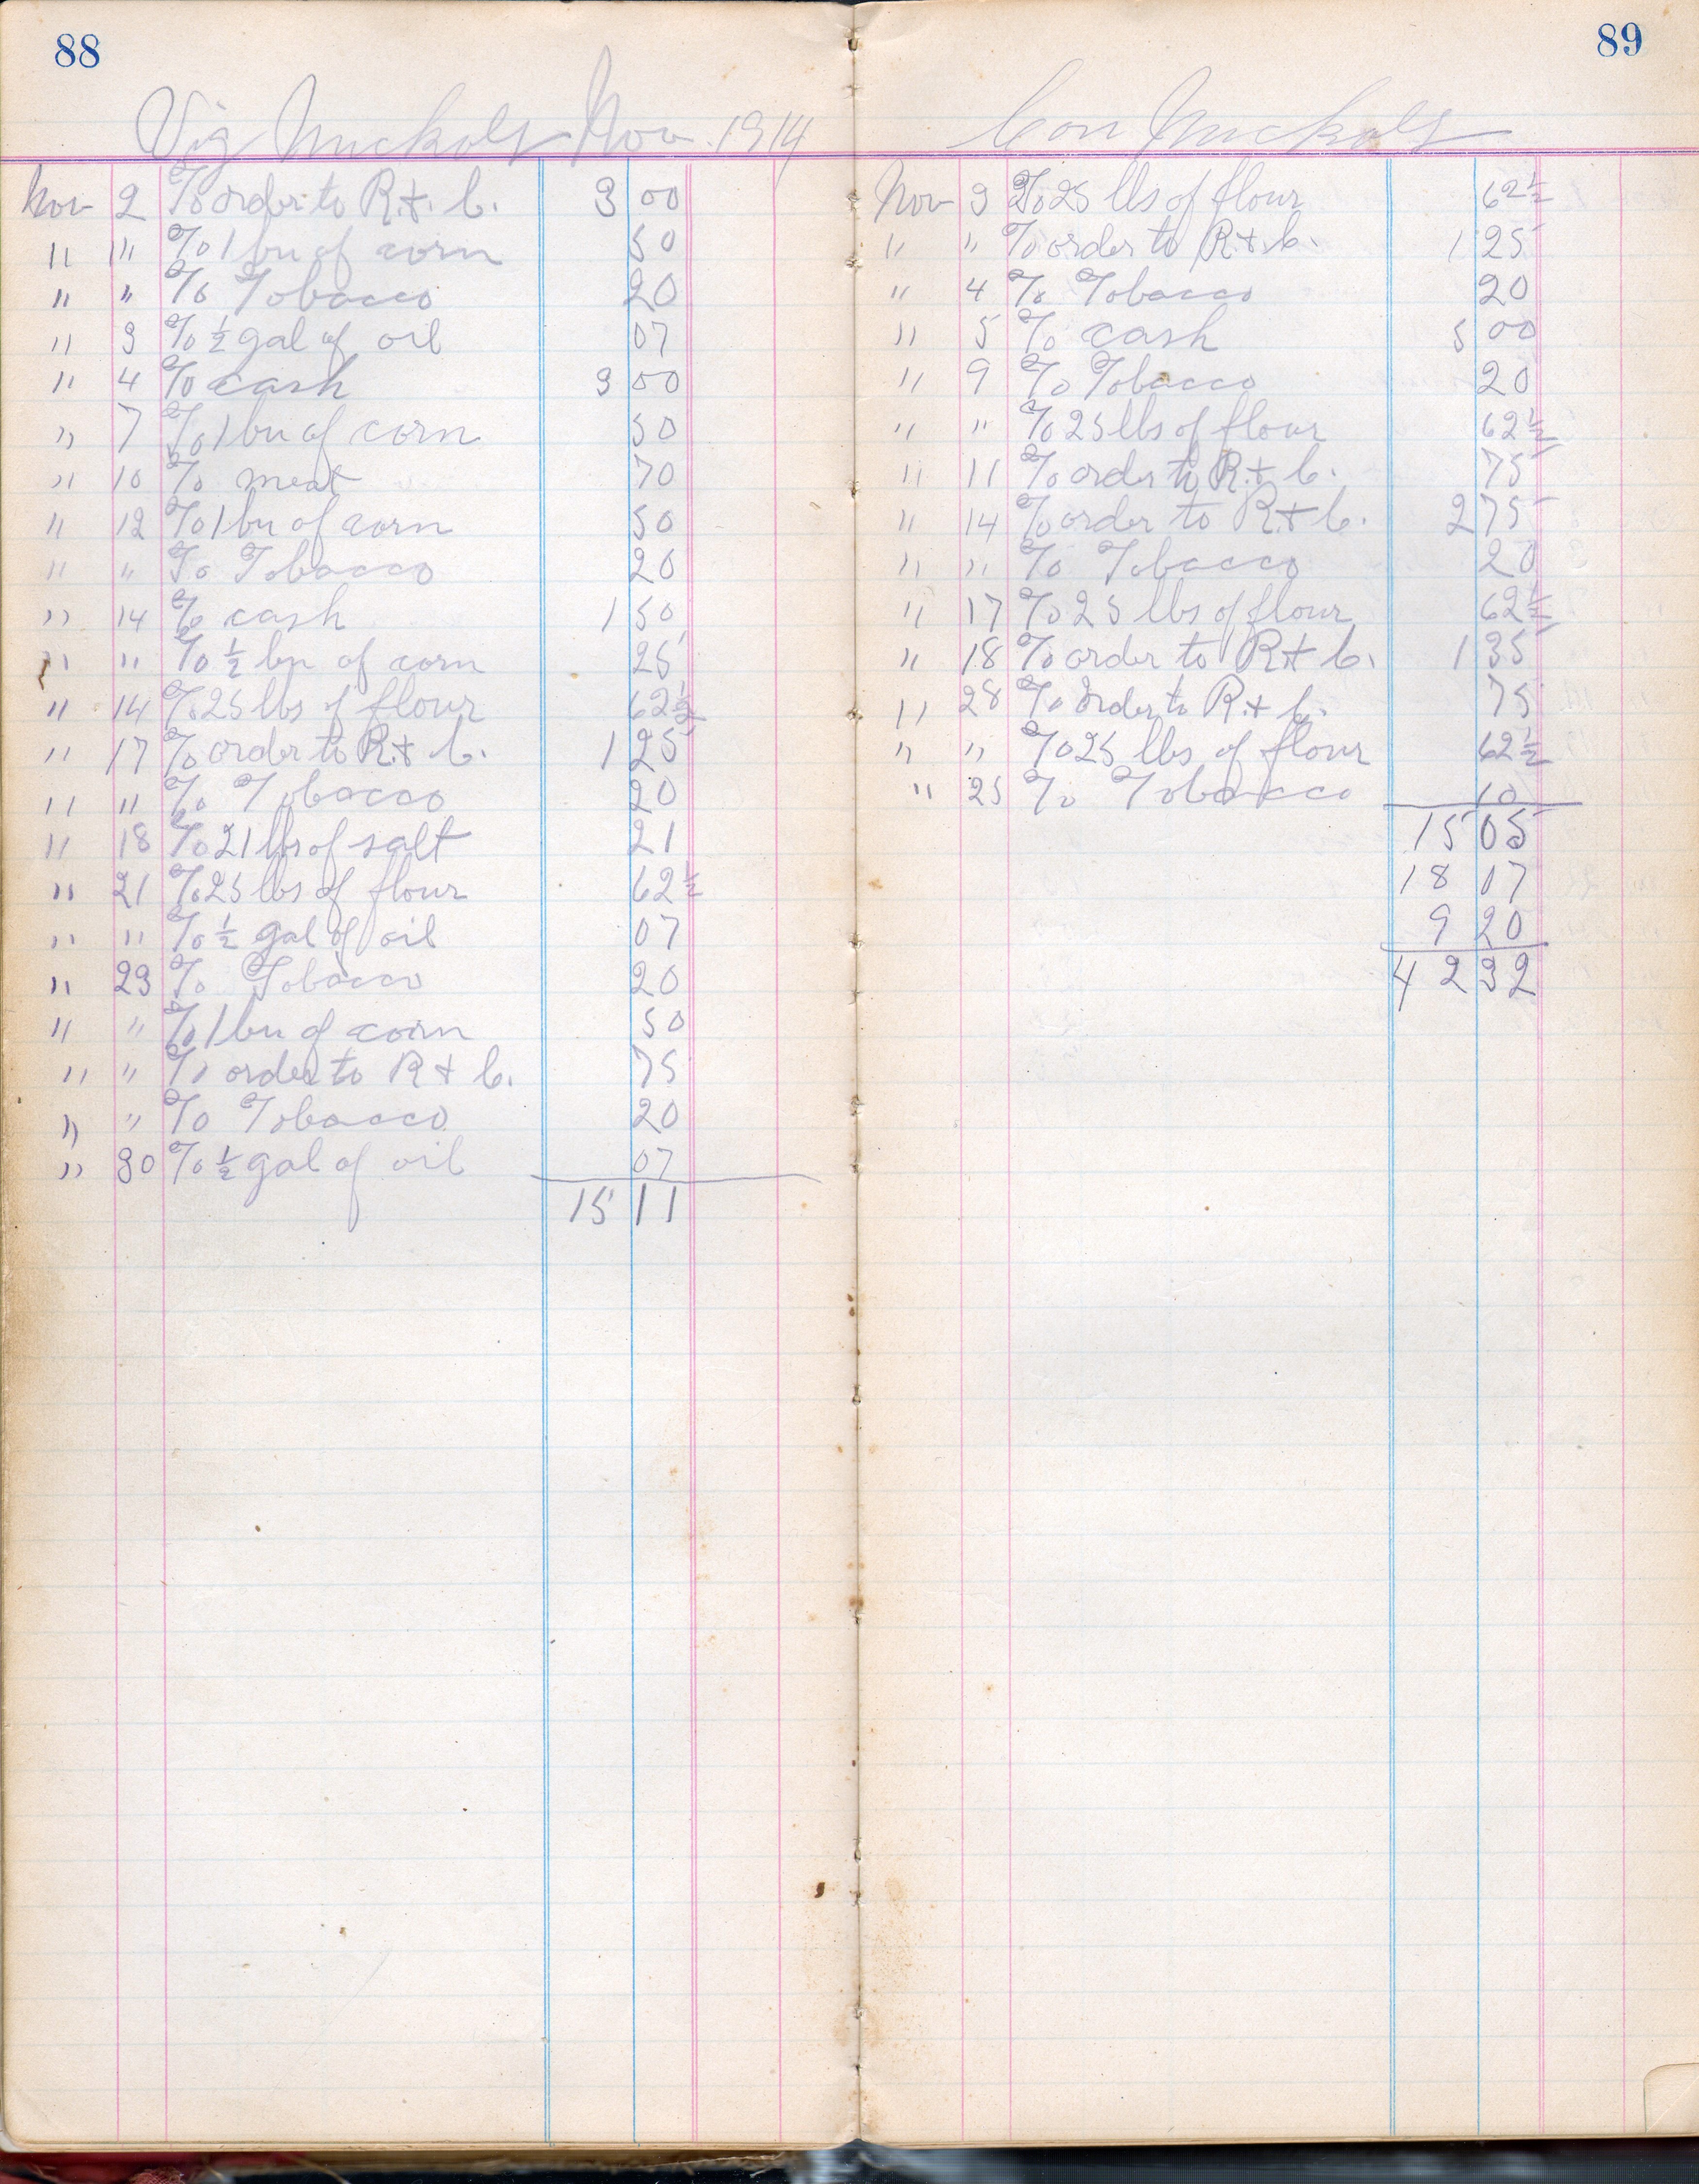 88
Vig Nuckols Nov. 1914
Nov 2 To order to R. & C. 3 00
" " To 1 bu of corn 50
" " To Tobacco 20
" 3 To ½ gal of oil 07
" 4 To cash 3 00
" 7 To 1 bu of corn 50
" 10 To meat 70
" 12 To 1 bu of corn 50
" " To Tobacco 20
" 14 To cash 1 50
" " To ½ bu of corn 25
" 14 To 25 lbs of flour 62½
" 17 To order to R. & C. 1 25
" " To Tobacco 20
" 18 To 21 lbs of salt 21
" 21 To 25 lbs of flour 62½
" " To ½ gal of oil 07
" 23 To Tobacco 20
" " To 1 bu of corn 50
" " To order to R & C. 75
" " To Tobacco 20
" 30 To ½ gal of oil 07
15 11
89
Con Nuckols
Nov 3 To 25 lbs of flour 62½
" " To order to R. & C. 1 25
" 4 To Tobacco 20
" 5 To cash 5 00
" 9 To Tobacco 20
" " To 25 lbs of flour 62½
" 11 To order to R. & C. 75
" 14 To order to R. & C. 2 75
" " To Tobacco 20
" 17 To 25 lbs of flour 62½
" 18 To order to R. & C. 1 35
" 28 To order to R. & C. 75
" " To 25 lbs of flour 62½
" 25 To Tobacco 10
15 05
18 07
9 20
42 32